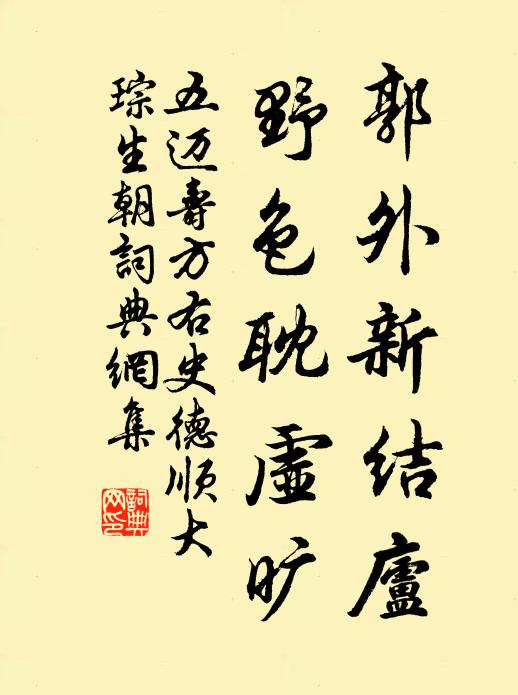 郭外新结廬
野色耽虛旷
五迈壽方右史德顺大
琮生朝詞典網集
詞典网印